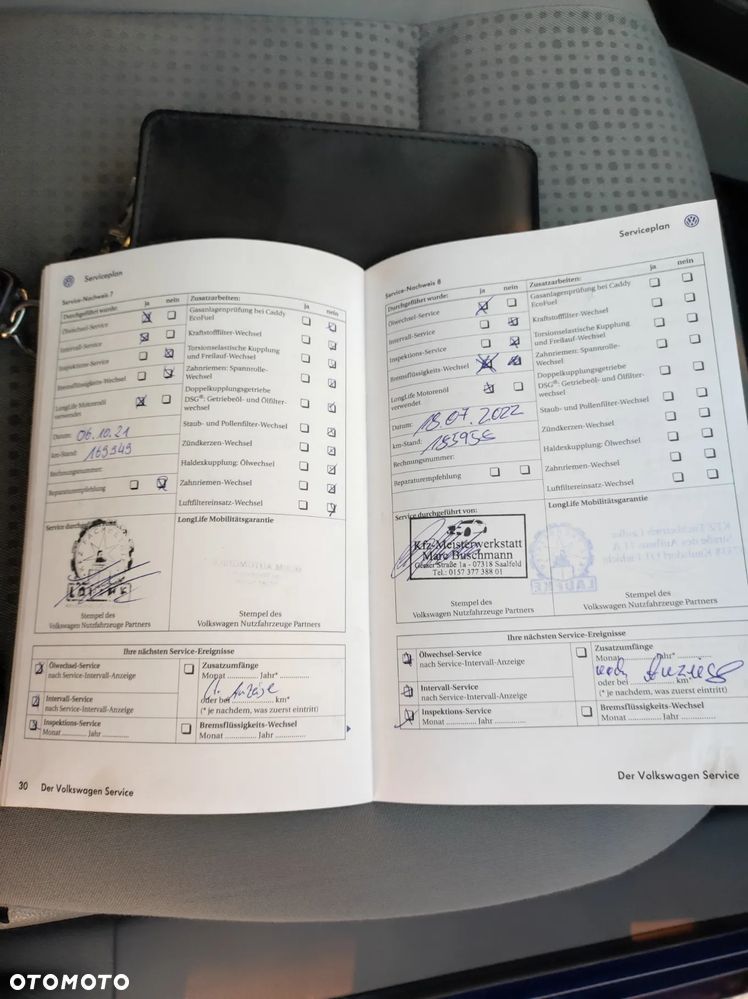 Serviceplan
Service-Nachweis 7
Durchgeführt wurde: ja nein
Ölwechsel-Service
Intervall-Service
Inspektions-Service
Bremsflüssigkeits-Wechsel
LongLife Motorenöl
verwendet
Datum: 06.10.21
km-Stand: 169349
Rechnungsnummer:
Reparaturempfehlung
Zusatzarbeiten: ja nein
Gasanlagenprüfung bei Caddy
EcoFuel
Kraftstofffilter-Wechsel
Torsionselastische Kupplung
und Freilauf-Wechsel
Zahnriemen: Spannrolle-
Wechsel
Doppelkupplungsgetriebe
DSG®: Getriebeöl- und Ölfilter-
wechsel
Staub- und Pollenfilter-Wechsel
Zündkerzen-Wechsel
Haldexkupplung: Ölwechsel
Zahnriemen-Wechsel
Luftfiltereinsatz-Wechsel
Service durchgeführt
LongLife Mobilitätsgarantie
Stempel des
Volkswagen Nutzfahrzeuge Partners
Stempel des
Volkswagen Nutzfahrzeuge Partners
Ihre nächsten Service-Ereignisse
Ölwechsel-Service
nach Service-Intervall-Anzeige
Intervall-Service
nach Service-Intervall-Anzeige
Inspektions-Service
Monat ............. Jahr .............
Zusatzumfänge
Monat ............. Jahr*.............
oder bei ............. km*
(* je nachdem, was zuerst eintritt)
Bremsflüssigkeits-Wechsel
Monat ............. Jahr .............
30 Der Volkswagen Service
Serviceplan
Service-Nachweis 8
Durchgeführt wurde: ja nein
Ölwechsel-Service
Intervall-Service
Inspektions-Service
Bremsflüssigkeits-Wechsel
LongLife Motorenöl
verwendet
Datum: 18.07.2022
km-Stand: 185956
Rechnungsnummer:
Reparaturempfehlung
Zusatzarbeiten: ja nein
Gasanlagenprüfung bei Caddy
EcoFuel
Kraftstofffilter-Wechsel
Torsionselastische Kupplung
und Freilauf-Wechsel
Zahnriemen: Spannrolle-
Wechsel
Doppelkupplungsgetriebe
DSG®: Getriebeöl- und Ölfilter-
wechsel
Staub- und Pollenfilter-Wechsel
Zündkerzen-Wechsel
Haldexkupplung: Ölwechsel
Zahnriemen-Wechsel
Luftfiltereinsatz-Wechsel
Service durchgeführt von:
Kfz-Meisterwerkstatt
Marc Buschmann
Straße 1a - 07318 Saalfeld
Tel.: 0157 377 388 01
LongLife Mobilitätsgarantie
Stempel des
Volkswagen Nutzfahrzeuge Partners
Stempel des
Volkswagen Nutzfahrzeuge Partners
Ihre nächsten Service-Ereignisse
Ölwechsel-Service
nach Service-Intervall-Anzeige
Intervall-Service
nach Service-Intervall-Anzeige
Inspektions-Service
Monat ............. Jahr .............
Zusatzumfänge
Monat ............. Jahr*.............
nach
oder bei ............. km*
(* je nachdem, was zuerst eintritt)
Bremsflüssigkeits-Wechsel
Monat ............. Jahr .............
Der Volkswagen Service
OTOMOTO